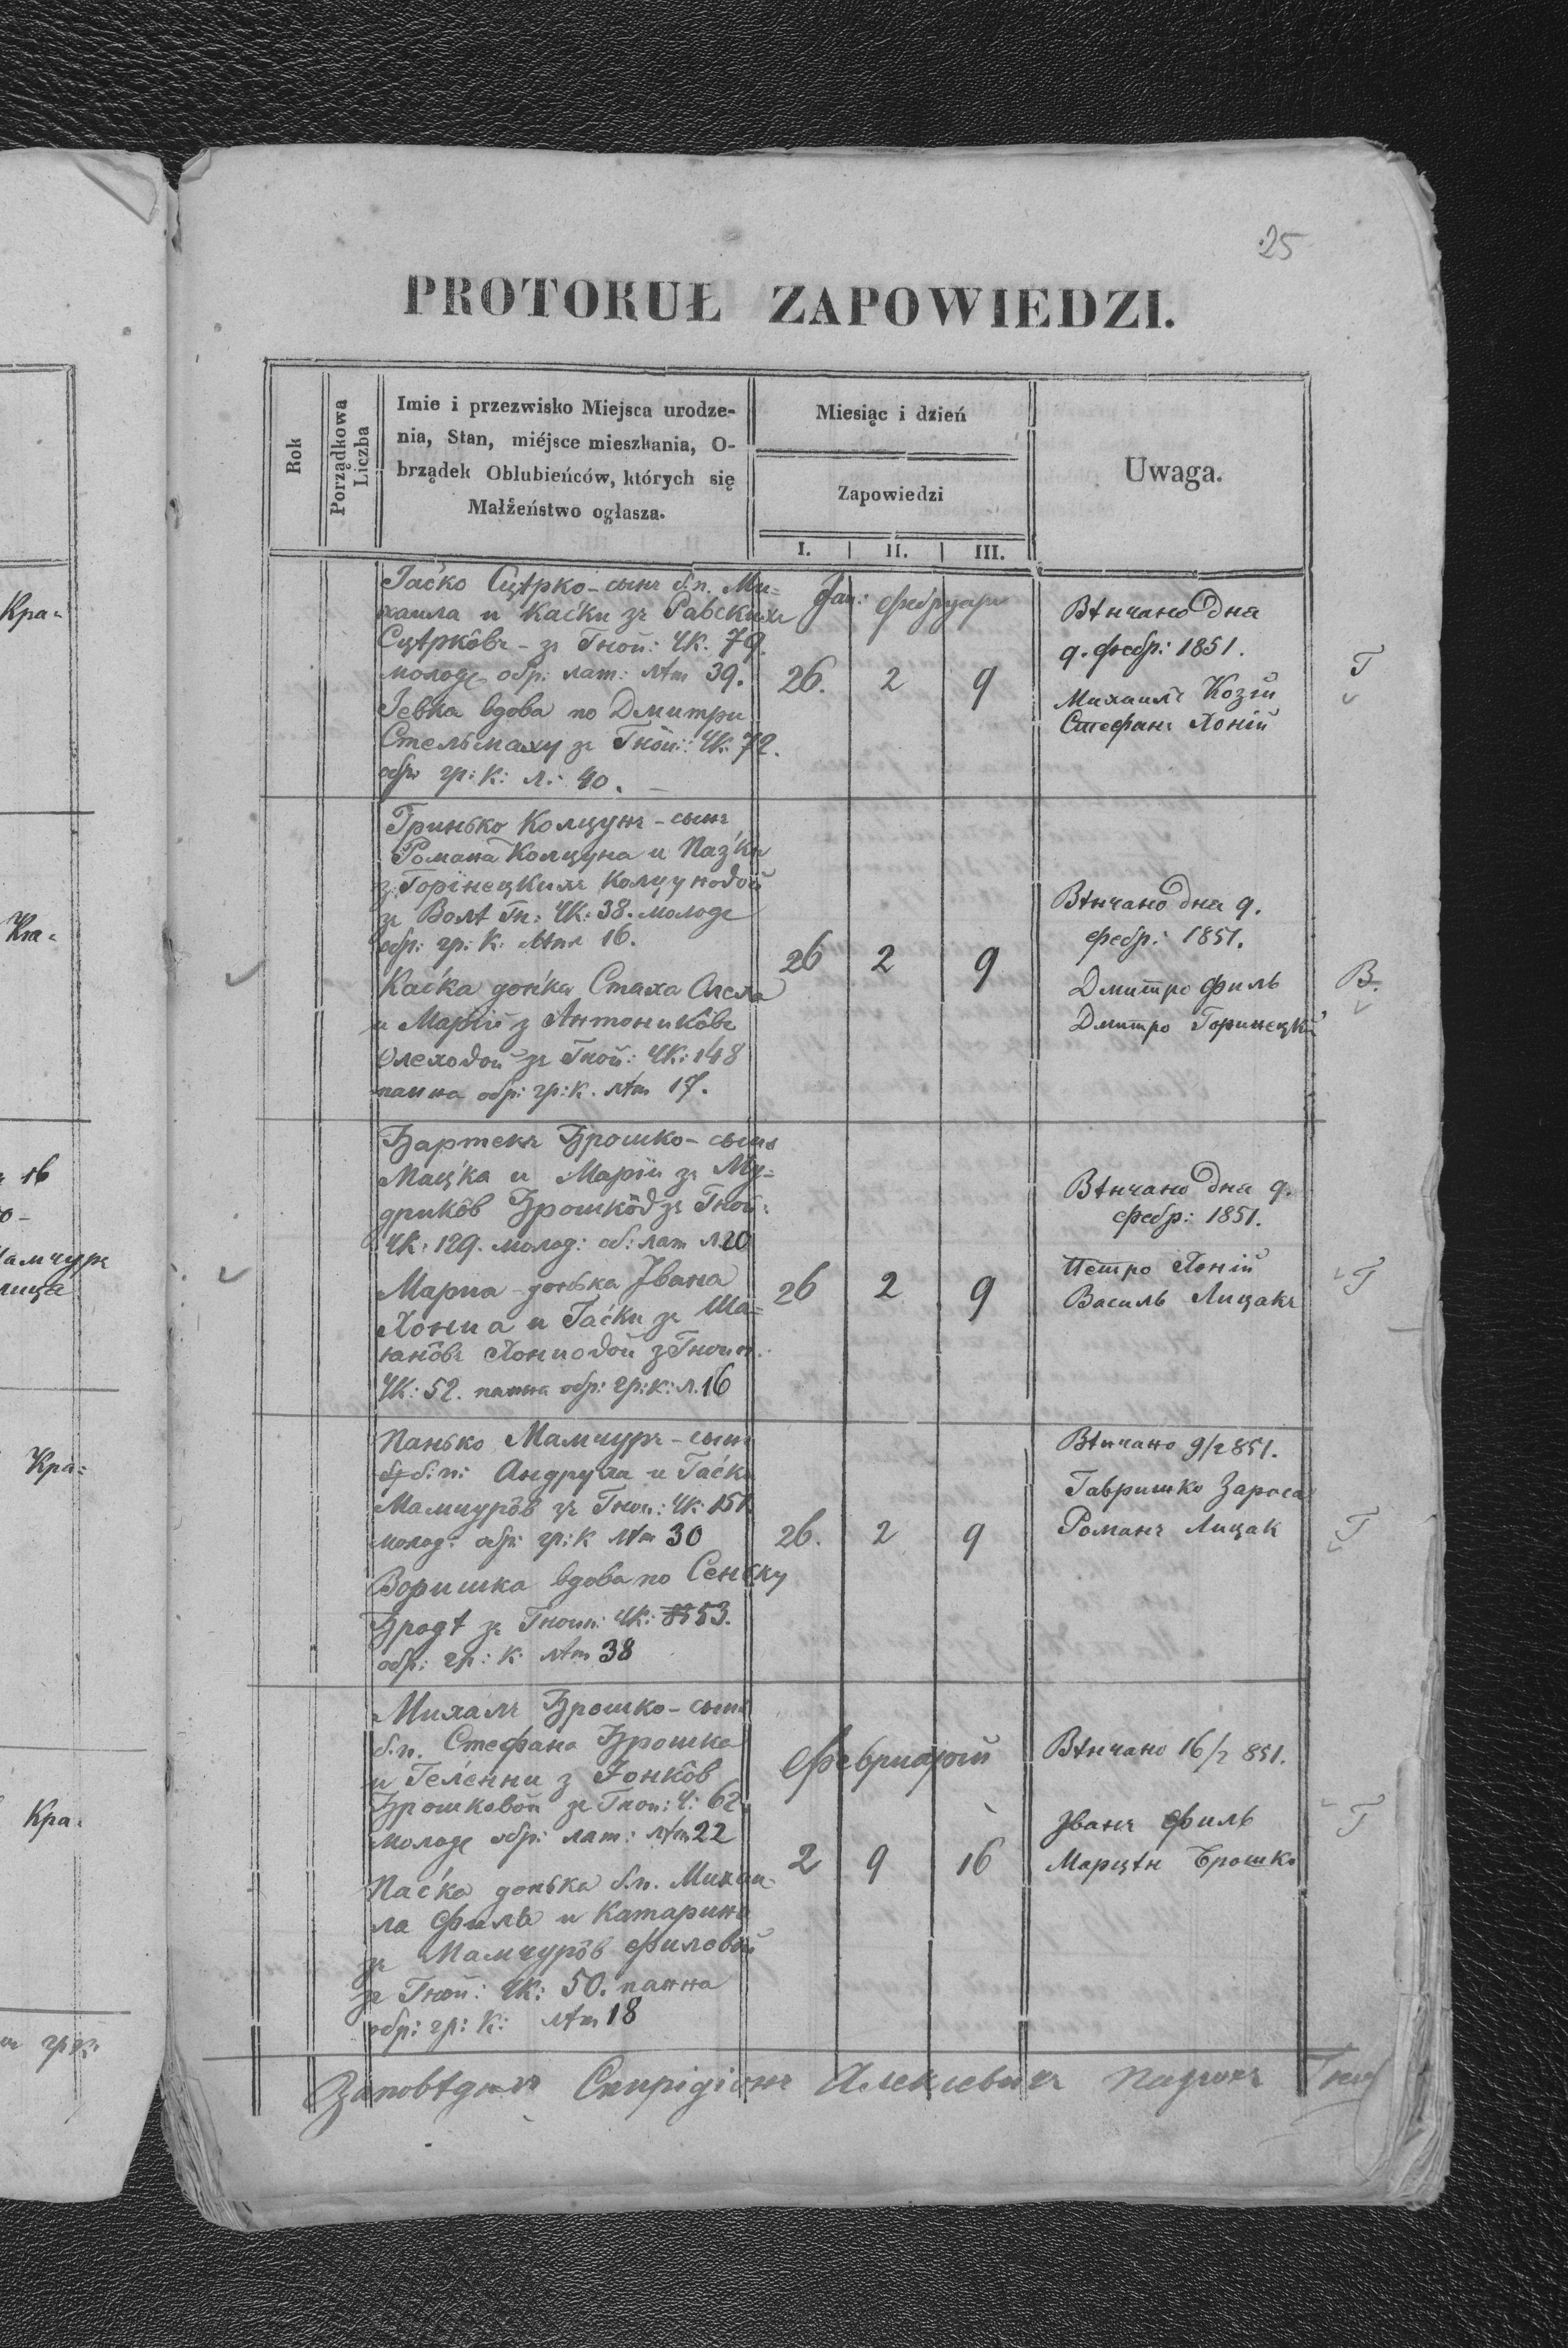 25
PROTOKUŁ ZAPOWIEDZI.
Rok
Porządkowa Liczba
Imie i przezwisko Miejsca urodze-
nia, Stan, miéjsce mieszkania, O-
brządek Oblubieńców, których się
Małżeństwo ogłasza.
Miesiąc i dzień
Zapowiedzi
I. II. III.
Uwaga.
Гаська Сцѣрко - сынъ б.п. Ми=
хаила и Каськи зъ Равскихъ
Сцѣркôвъ - зъ Гной: ЧК. 79.
молодъ обр: лат: лѣт 39.
Іевка вдова по Дмитри
Стельмаху зъ Гной: ЧК: 72.
обр: гр: К: л: 40.
Ян: Фебруар
26. 2 9
Вѣнчано дня
9. Фебр: 1851.
Михаилъ Козій
Стефанъ Хоній
Г
Гринько Колцунъ - сынъ
Романа Колцуна и Пазьки
з Горінецкихъ Колцуновой
зъ Волѣ Гн: ЧК: 38. молодъ
обр: гр: К: лѣтъ 16.
Каська донька Стаха Олеха
и Марій з Антоникôвъ
Олеховой зъ Гной: ЧК: 148
панна обр: гр: К. лѣт 17.
26 2 9
Вѣнчано дня 9.
Фебр: 1851.
Дмитро Филь
Дмитро Горинецкій
В.
Бартекъ Брошко - сынъ
Мацька и Маріи зъ Му=
дрикôв Брошкôв зъ Гной:
ЧК: 129. молод: об: лат л. 20
Мария - донька Івана
Хониа и Гаськи зъ Ша=
Хониовой з Гноин.
ЧК: 52. панна обр: гр: к: л. 16
26 2 9
Вѣнчано дня 9.
Фебр: 1851.
Петро Хоній
Василь Лицакъ
Г
Панько Мамчуръ - сынъ
б: п: Андруха и Гаськи
Мамчурôв зъ Гной: ЧК: 151.
молод: обр: гр: К лѣт 30
Воришка вдова по Сеньку
Бродѣ зъ Гноин: ЧК: 53.
обр: гр: К: лѣт 38
26. 2 9
Вѣнчано 9/2 851.
Гавришко Зароса
Романъ Лицак
Г
Михалъ Брошко - сынъ
б.п. Стефана Брошка
и Геленни з Іонкôв
Брошковой зъ Гной: Ч: 62.
молодъ обр: лат: лѣт 22
Паська донька б.п. Михаи-
ла Филь и Катарини
зъ Мамчурôв Филовой
зъ Гной: ЧК: 50. панна
обр: гр: К: лѣт 18
Фебриарій
2 9 16
Вѣнчано 16/2 851.
Іванъ Филь
Марцѣн Брошко
Г
Заповѣдалъ Спирідіонъ Алексевичъ
Кра-
Кра=
16
Мамчуръ
Кра=
Кра.
гр К: